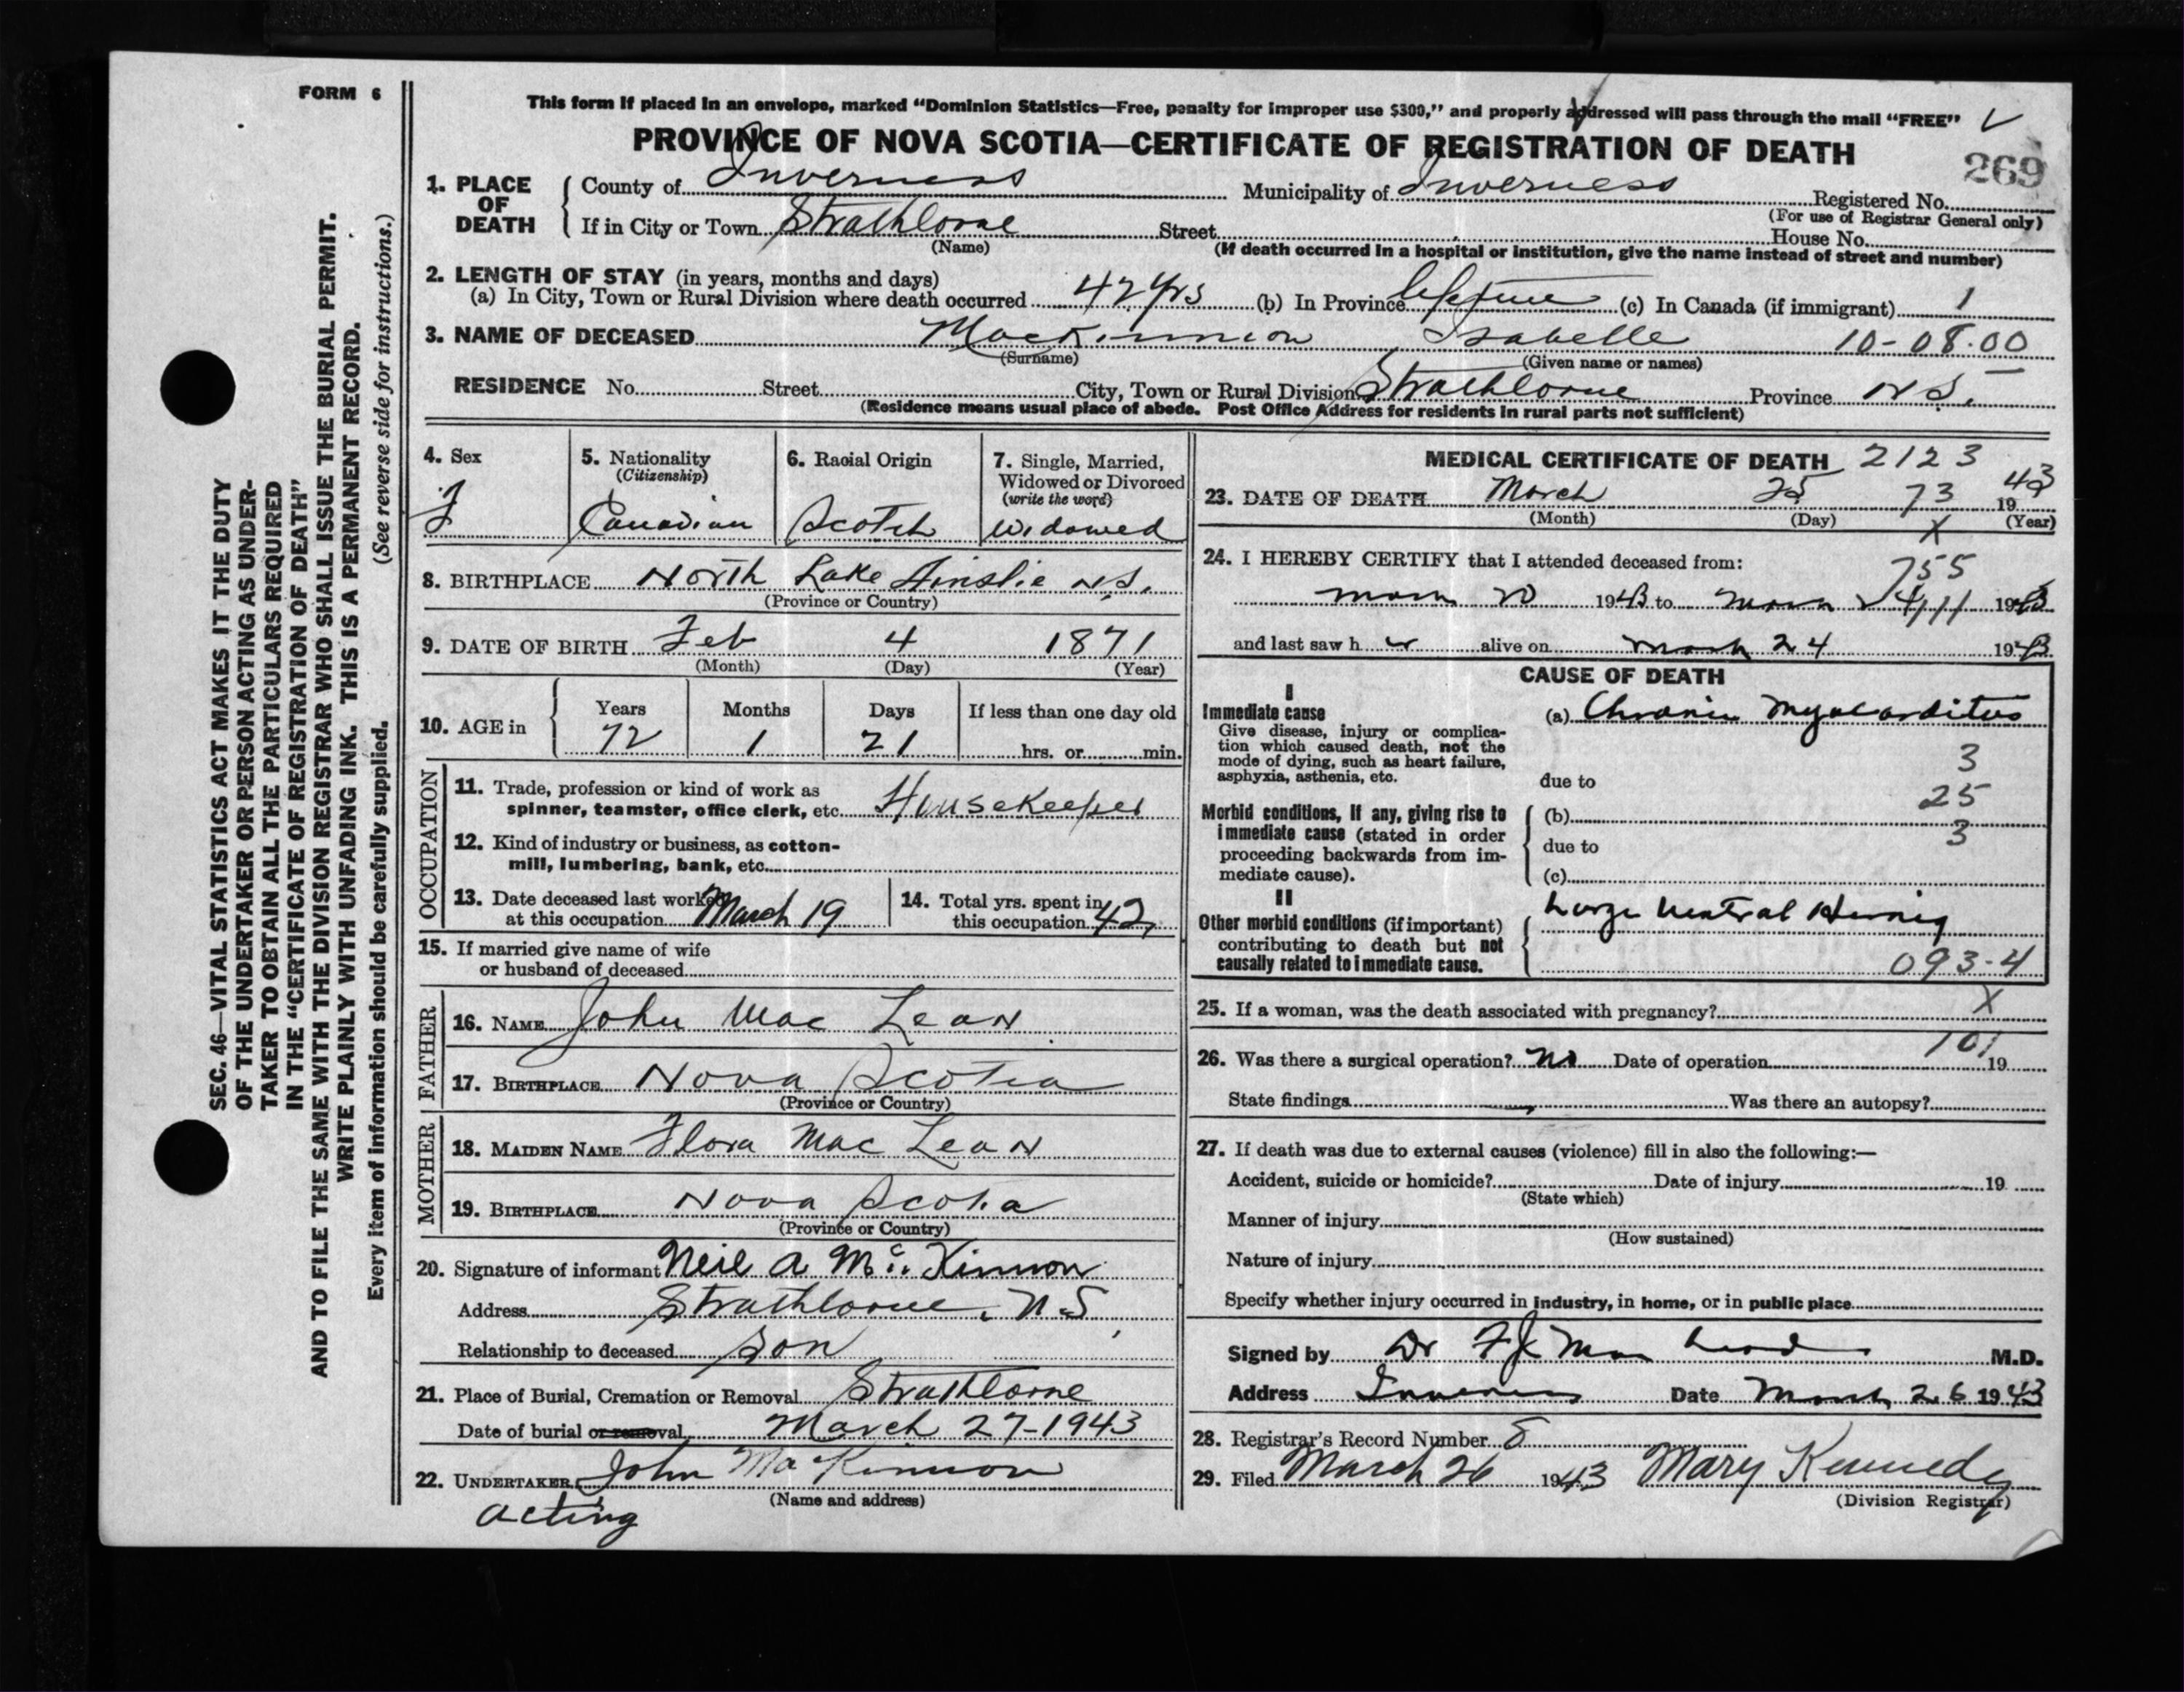 FORM 6
This form if placed in an envelope, marked “Dominion Statistics—Free, penalty for improper use $300,” and properly addressed will pass through the mail “FREE”
PROVINCE OF NOVA SCOTIA—CERTIFICATE OF REGISTRATION OF DEATH
269
1. PLACE OF DEATH
County of Inverness Municipality of Inverness Registered No.
(For use of Registrar General only)
If in City or Town Strathlorne Street House No.
(Name) (If death occurred in a hospital or institution, give the name instead of street and number)
2. LENGTH OF STAY (in years, months and days)
(a) In City, Town or Rural Division where death occurred 42 yrs (b) In Province lifetime (c) In Canada (if immigrant) 1
3. NAME OF DECEASED MacKinnon Isabelle 10-08.00
(Surname) (Given name or names)
RESIDENCE No. Street City, Town or Rural Division Strathlorne Province N S.
(Residence means usual place of abode. Post Office Address for residents in rural parts not sufficient)
4. Sex
F
5. Nationality
(Citizenship)
Canadian
6. Racial Origin
Scotch
7. Single, Married,
Widowed or Divorced
(write the word)
Widowed
8. BIRTHPLACE North Lake Ainslie N.S.
(Province or Country)
9. DATE OF BIRTH Feb 4 1871
(Month) (Day) (Year)
10. AGE in
Years Months Days If less than one day old
72 1 21 hrs. or min.
OCCUPATION
11. Trade, profession or kind of work as
spinner, teamster, office clerk, etc. Housekeeper
12. Kind of industry or business, as cotton-
mill, lumbering, bank, etc.
13. Date deceased last worked
at this occupation March 19
14. Total yrs. spent in
this occupation 42
15. If married give name of wife
or husband of deceased
FATHER
16. NAME John Mac Lean
17. BIRTHPLACE Nova Scotia
(Province or Country)
MOTHER
18. MAIDEN NAME Flora Mac Lean
19. BIRTHPLACE Nova Scotia
(Province or Country)
20. Signature of informant Neil A McKinnon
Address Strathlorne, N.S.
Relationship to deceased son
21. Place of Burial, Cremation or Removal Strathlorne
Date of burial or removal March 27-1943
22. UNDERTAKER John MacKinnon
(Name and address)
acting
MEDICAL CERTIFICATE OF DEATH 2123
23. DATE OF DEATH March 25 73 1943
(Month) (Day) (Year)
X
24. I HEREBY CERTIFY that I attended deceased from:
755
1943 to 411 1943
and last saw h er alive on March 24 1943
CAUSE OF DEATH
I
Immediate cause
Give disease, injury or complica-
tion which caused death, not the
mode of dying, such as heart failure,
asphyxia, asthenia, etc.
(a) Chronic Myocarditus
3
due to
25
Morbid conditions, if any, giving rise to
immediate cause (stated in order
proceeding backwards from im-
mediate cause).
(b)
3
due to
(c)
II
Other morbid conditions (if important)
contributing to death but not
causally related to immediate cause.
Large Ventral Hernia
093-4
25. If a woman, was the death associated with pregnancy? X
101
26. Was there a surgical operation? no Date of operation 19
State findings Was there an autopsy?
27. If death was due to external causes (violence) fill in also the following:—
Accident, suicide or homicide? Date of injury 19
(State which)
Manner of injury
(How sustained)
Nature of injury
Specify whether injury occurred in industry, in home, or in public place
Signed by Dr M.D.
Address Inverness Date March 26 1943
28. Registrar’s Record Number 8
29. Filed March 26 1943 Mary Kennedy
(Division Registrar)
SEC. 46—VITAL STATISTICS ACT MAKES IT THE DUTY
OF THE UNDERTAKER OR PERSON ACTING AS UNDER-
TAKER TO OBTAIN ALL THE PARTICULARS REQUIRED
IN THE “CERTIFICATE OF REGISTRATION OF DEATH”
AND TO FILE THE SAME WITH THE DIVISION REGISTRAR WHO SHALL ISSUE THE BURIAL PERMIT.
WRITE PLAINLY WITH UNFADING INK. THIS IS A PERMANENT RECORD.
Every item of information should be carefully supplied. (See reverse side for instructions.)